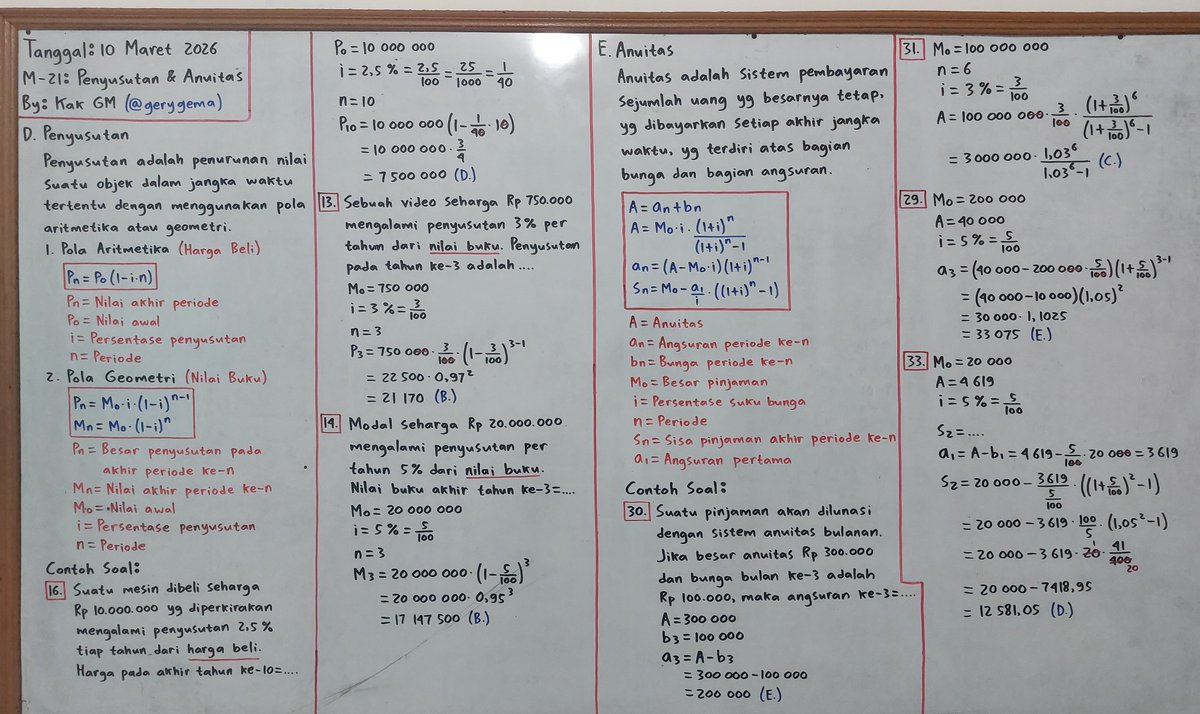 Tanggal: 10 Maret 2026
M-21: Penyusutan & Anuitas
By: Kak GM (@gerygema)
D. Penyusutan
Penyusutan adalah penurunan nilai
suatu objek dalam jangka waktu
tertentu dengan menggunakan pola
aritmetika atau geometri.
1. Pola Aritmetika (Harga Beli)
Pn = P₀ (1-i·n)
Pn = Nilai akhir periode
P₀ = Nilai awal
i = Persentase penyusutan
n = Periode
2. Pola Geometri (Nilai Buku)
Pn = M₀·i·(1-i)ⁿ⁻¹
Mn = M₀·(1-i)ⁿ
Pn = Besar penyusutan pada
akhir periode ke-n
Mn = Nilai akhir periode ke-n
M₀ = Nilai awal
i = Persentase penyusutan
n = Periode
Contoh Soal:
16. Suatu mesin dibeli seharga
Rp 10.000.000 yg diperkirakan
mengalami penyusutan 2,5 %
tiap tahun dari harga beli.
Harga pada akhir tahun ke-10=....
P₀ = 10 000 000
i = 2,5 % = 2,5/100 = 25/1000 = 1/40
n = 10
P₁₀ = 10 000 000 (1 - 1/40 · 10)
= 10 000 000 · 3/4
= 7 500 000 (D.)
13. Sebuah video seharga Rp 750.000
mengalami penyusutan 3 % per
tahun dari nilai buku. Penyusutan
pada tahun ke-3 adalah ....
M₀ = 750 000
i = 3 % = 3/100
n = 3
P₃ = 750 000 · 3/100 · (1 - 3/100)³⁻¹
= 22 500 · 0,97²
= 21 170 (B.)
14. Modal seharga Rp 20.000.000
mengalami penyusutan per
tahun 5 % dari nilai buku.
Nilai buku akhir tahun ke-3=....
M₀ = 20 000 000
i = 5 % = 5/100
n = 3
M₃ = 20 000 000 · (1 - 5/100)³
= 20 000 000 · 0,95³
= 17 147 500 (B.)
E. Anuitas
Anuitas adalah sistem pembayaran
sejumlah uang yg besarnya tetap,
yg dibayarkan setiap akhir jangka
waktu, yg terdiri atas bagian
bunga dan bagian angsuran.
A = an + bn
A = M₀·i·(1+i)ⁿ/((1+i)ⁿ-1)
an = (A-M₀·i)(1+i)ⁿ⁻¹
Sn = M₀ - a₁/i · ((1+i)ⁿ-1)
A = Anuitas
an = Angsuran periode ke-n
bn = Bunga periode ke-n
M₀ = Besar pinjaman
i = Persentase suku bunga
n = Periode
Sn = Sisa pinjaman akhir periode ke-n
a₁ = Angsuran pertama
Contoh Soal:
30. Suatu pinjaman akan dilunasi
dengan sistem anuitas bulanan.
Jika besar anuitas Rp 300.000
dan bunga bulan ke-3 adalah
Rp 100.000, maka angsuran ke-3=....
A = 300 000
b₃ = 100 000
a₃ = A - b₃
= 300 000 - 100 000
= 200 000 (E.)
31. M₀ = 100 000 000
n = 6
i = 3 % = 3/100
A = 100 000 000 · 3/100 · (1+3/100)⁶/((1+3/100)⁶-1)
= 3 000 000 · 1,03⁶/(1,03⁶-1) (C.)
29. M₀ = 200 000
A = 40 000
i = 5 % = 5/100
a₃ = (40 000 - 200 000 · 5/100)(1 + 5/100)³⁻¹
= (40 000 - 10 000)(1,05)²
= 30 000 · 1,1025
= 33 075 (E.)
33. M₀ = 20 000
A = 4 619
i = 5 % = 5/100
S₂ = ....
a₁ = A - b₁ = 4 619 - 5/100 · 20 000 = 3 619
S₂ = 20 000 - 3 619/(5/100) · ((1 + 5/100)² - 1)
= 20 000 - 3 619 · 100/5 · (1,05² - 1)
= 20 000 - 3 619 · 20 1 · 41/400 20
= 20 000 - 7418,95
= 12 581,05 (D.)